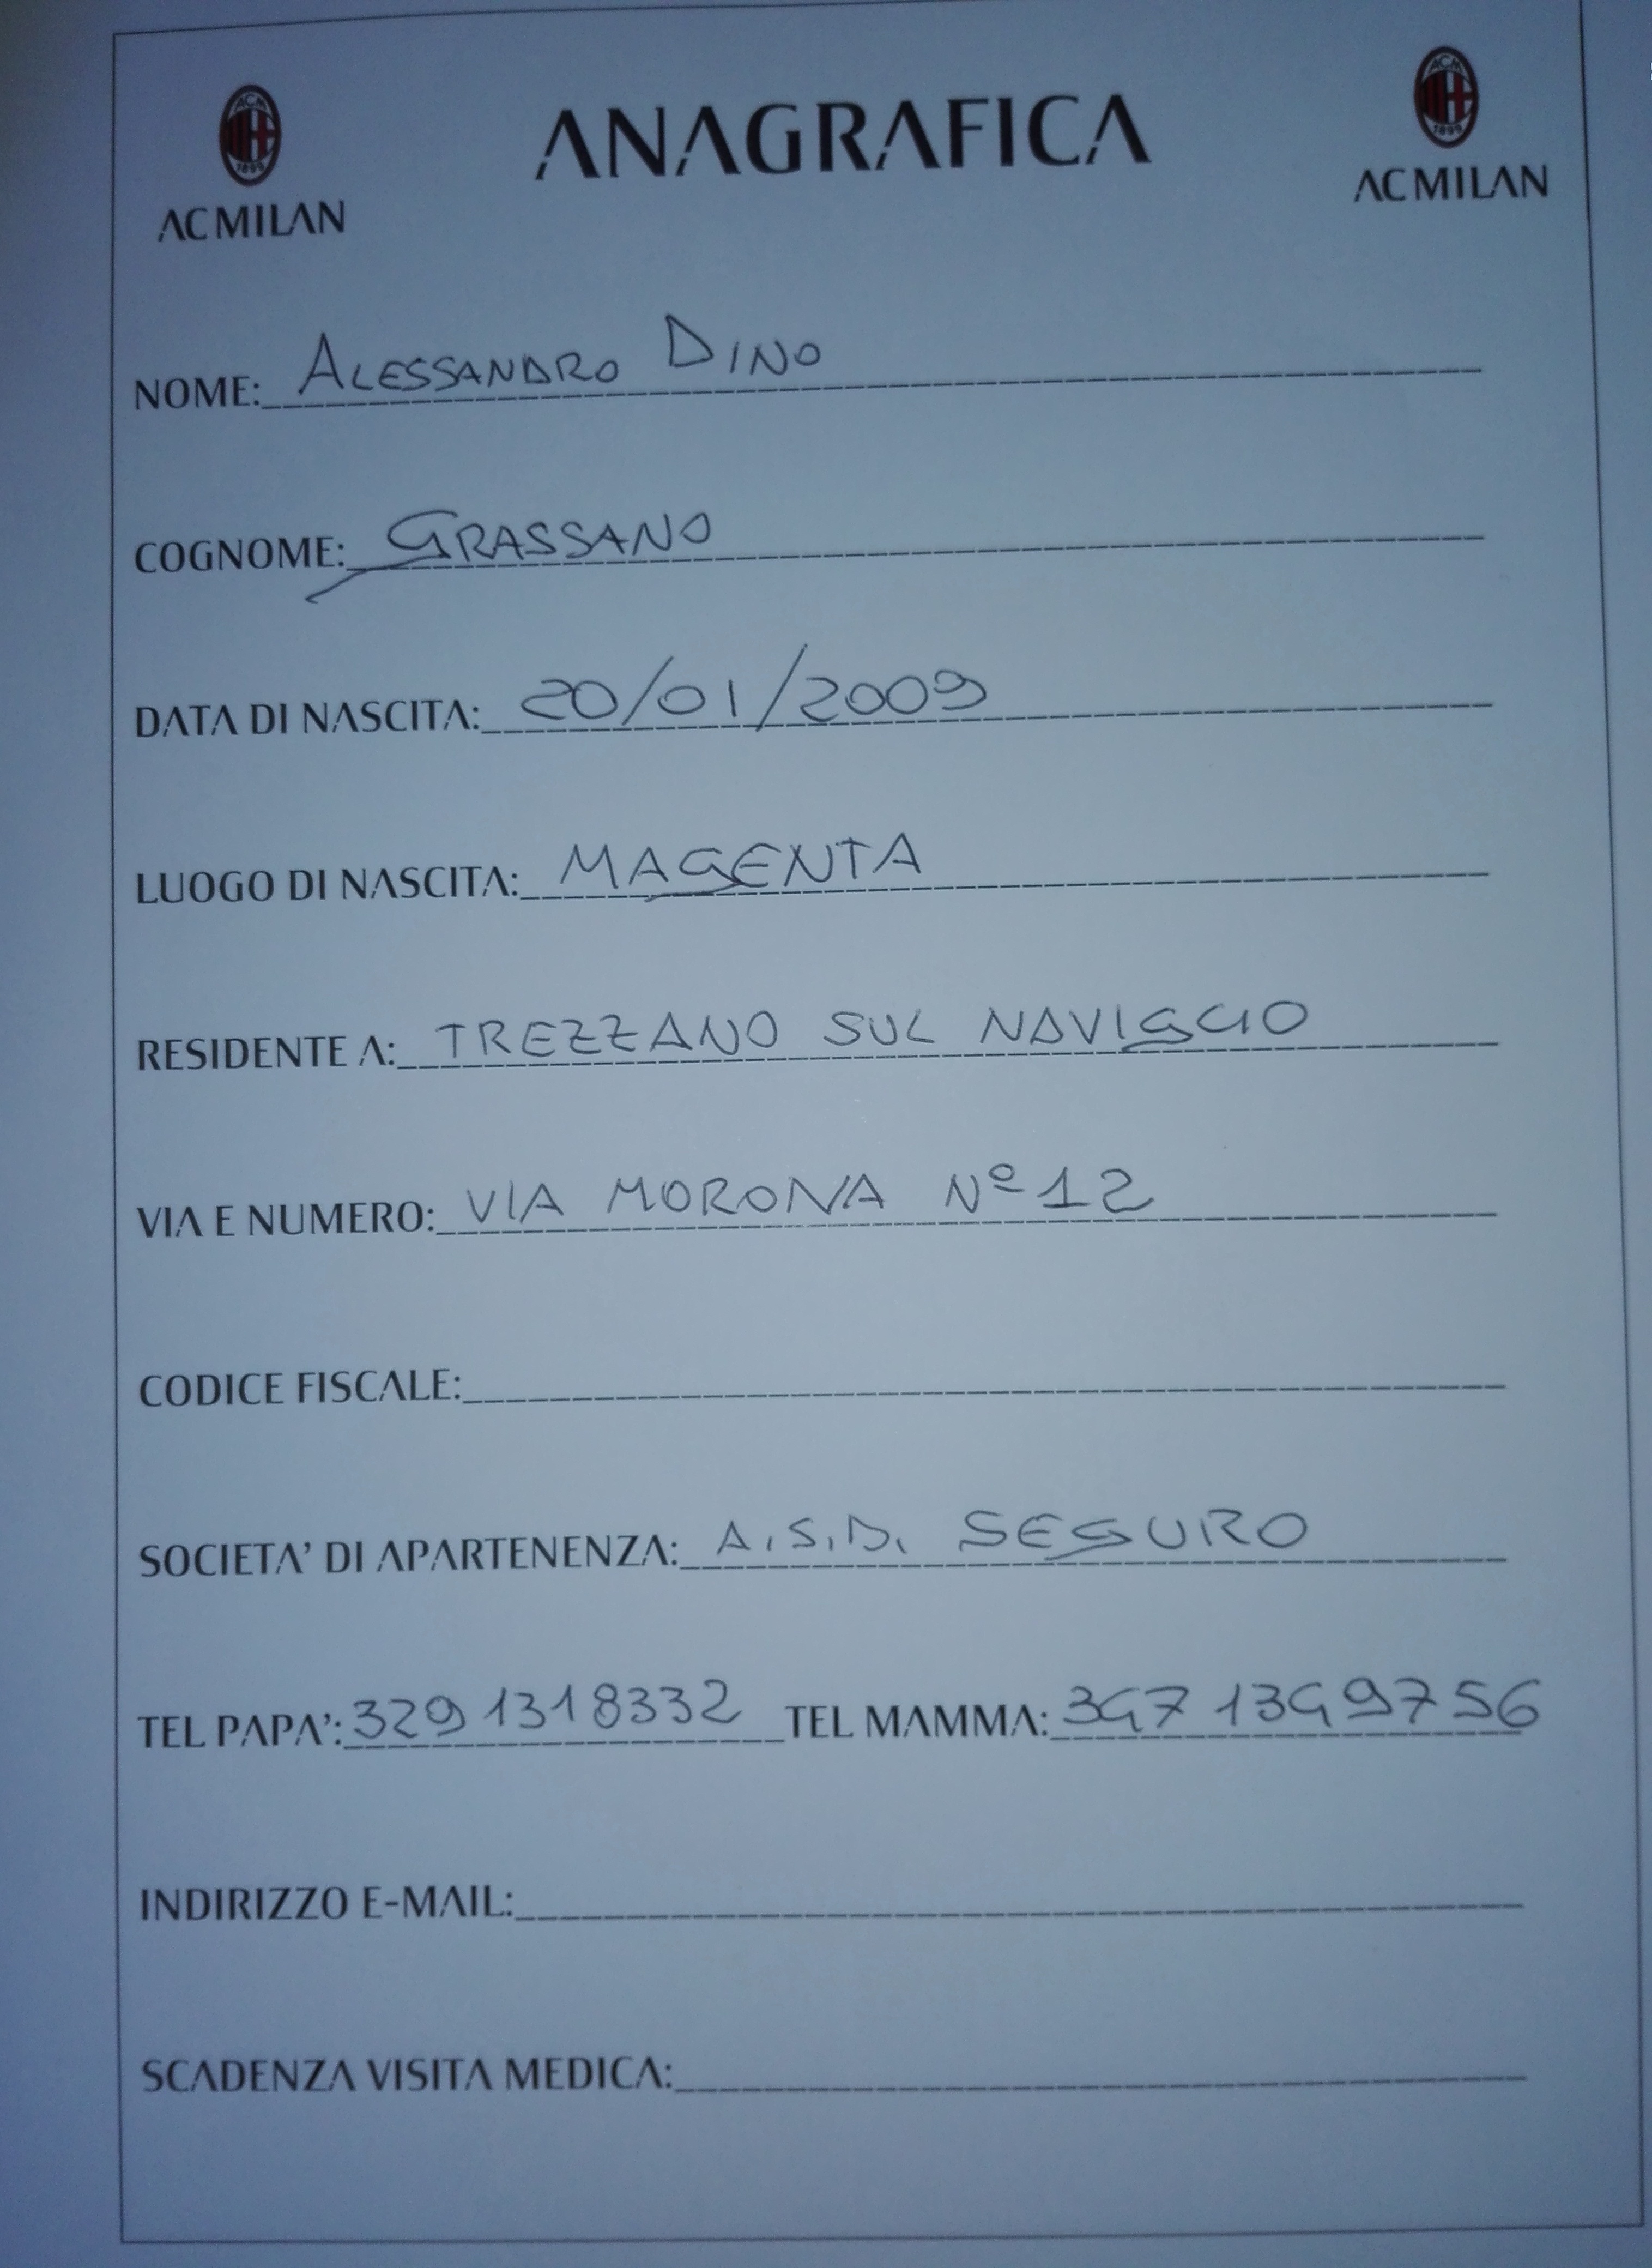 ACM
1899
AC MILAN
ANAGRAFICA
ACM
1899
AC MILAN
NOME: ALESSANDRO DINO
COGNOME: GRASSANO
DATA DI NASCITA: 20/01/2009
LUOGO DI NASCITA: MAGENTA
RESIDENTE A: TREZZANO SUL NAVIGGIO
VIA E NUMERO: VIA MORONA Nº 12
CODICE FISCALE:
SOCIETA' DI APARTENENZA: A.S.D. SEGURO
TEL PAPA': 329 1318332 TEL MAMMA: 347 1349756
INDIRIZZO E-MAIL:
SCADENZA VISITA MEDICA: